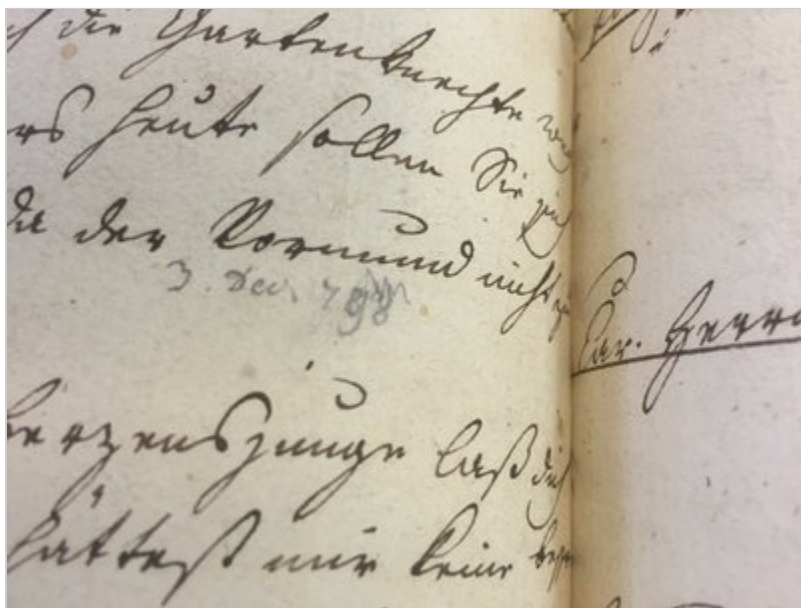 die Gartenknechte
heute sollen Sie
da der Vormund nicht
3. Dec. 798
Herzensjunge laß dich
hättest mir keine
Car. Herrn